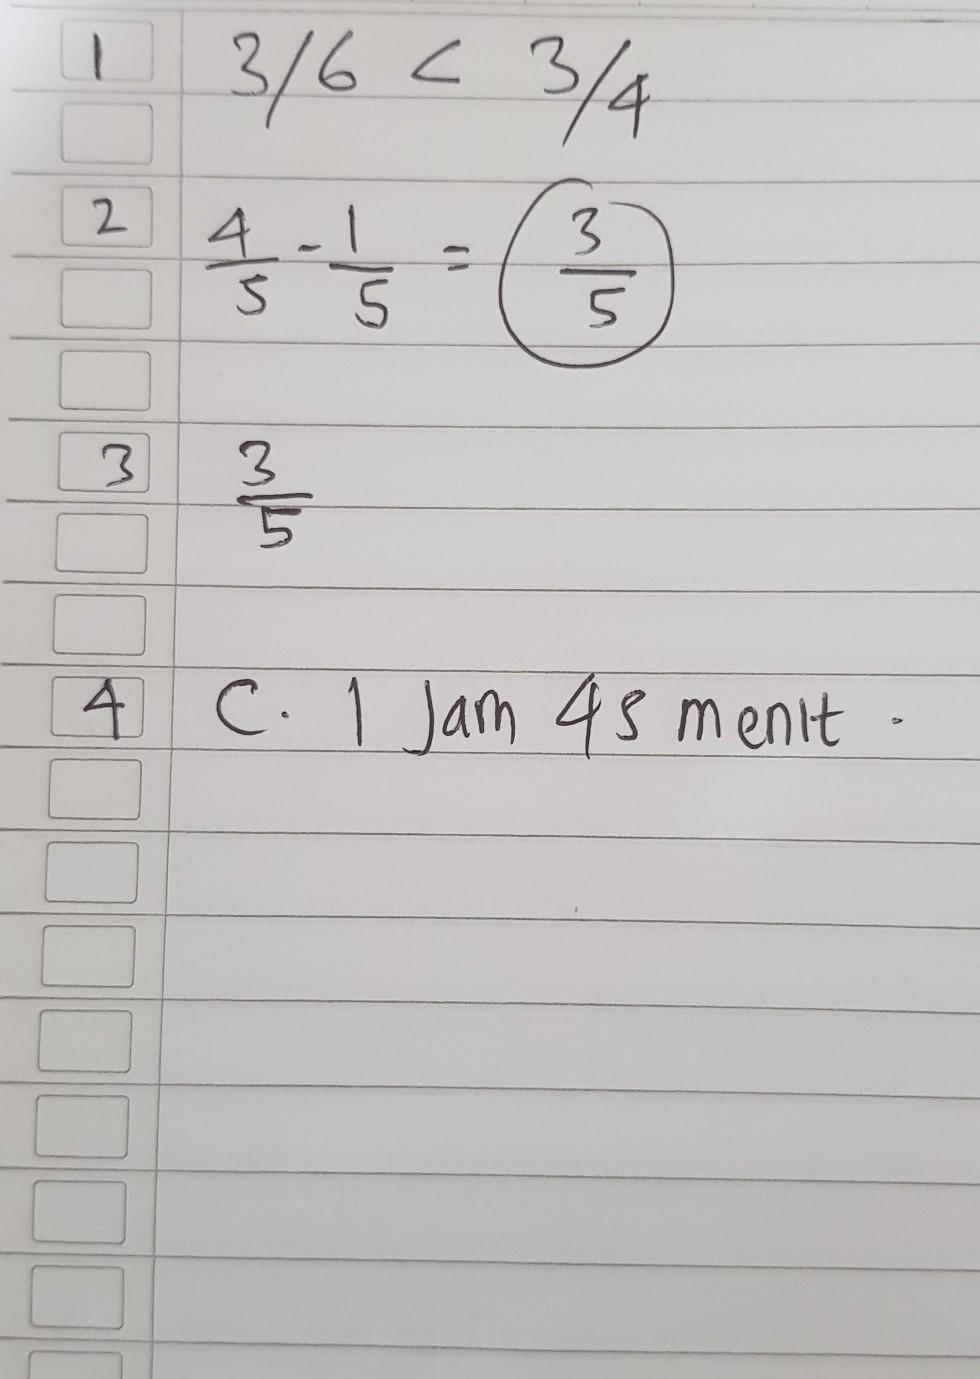 1 3/6 < 3/4
2 4/5 - 1/5 = 3/5
3 3/5
4 C. 1 Jam 45 menit.